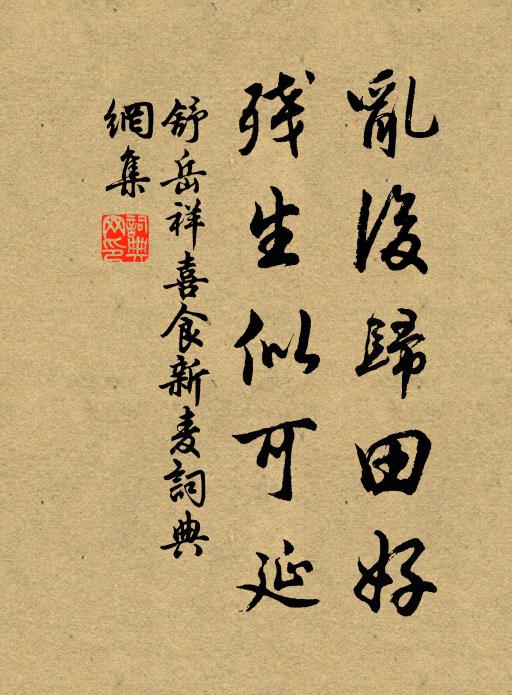 亂後歸田好
殘生似可延
舒岳祥喜食新麦詞典
網集
詞典网印